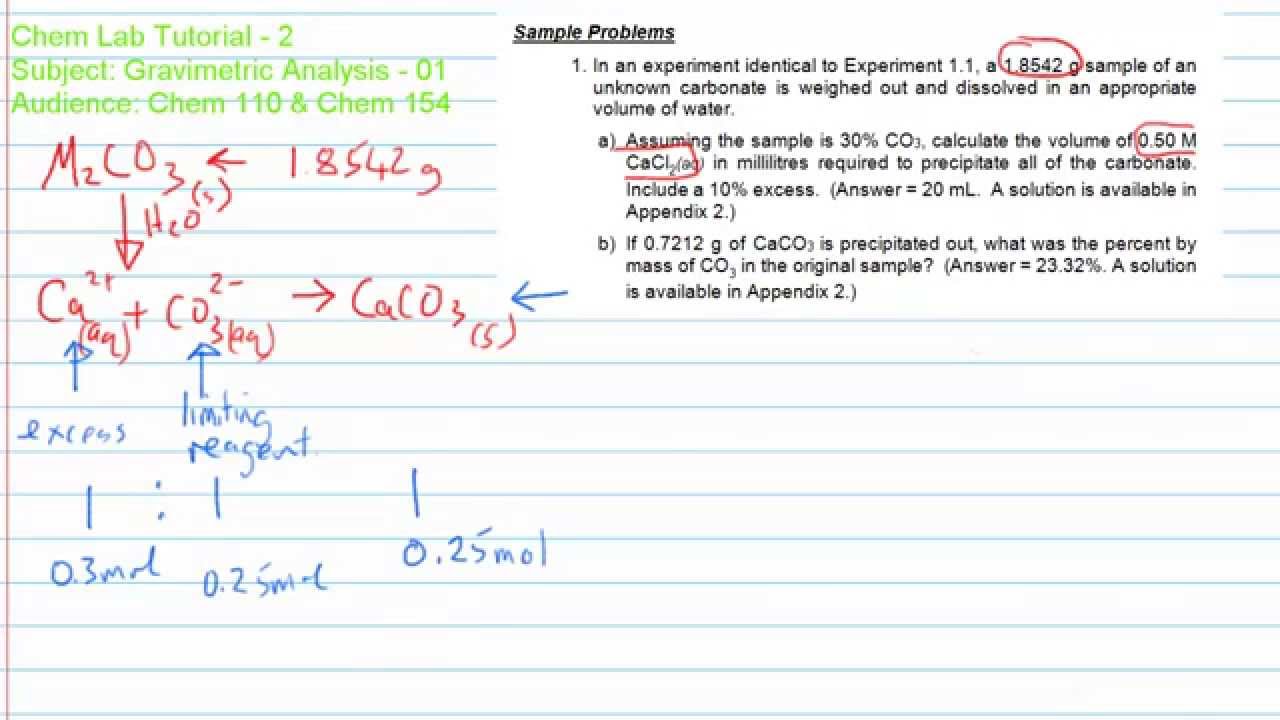 Chem Lab Tutorial - 2
Subject: Gravimetric Analysis - 01
Audience: Chem 110 & Chem 154
Sample Problems
1. In an experiment identical to Experiment 1.1, a 1.8542 g sample of an
unknown carbonate is weighed out and dissolved in an appropriate
volume of water.
a) Assuming the sample is 30% CO₃, calculate the volume of 0.50 M
CaCl₂(aq) in millilitres required to precipitate all of the carbonate.
Include a 10% excess. (Answer = 20 mL. A solution is available in
Appendix 2.)
b) If 0.7212 g of CaCO₃ is precipitated out, what was the percent by
mass of CO₃ in the original sample? (Answer = 23.32%. A solution
is available in Appendix 2.)
M₂CO₃(s) ← 1.8542 g
↓ H₂O
Ca²⁺(aq) + CO₃²⁻(aq) → CaCO₃(s) ←
excess
limiting
reagent.
1 : 1 1
0.3mol 0.25mol 0.25mol